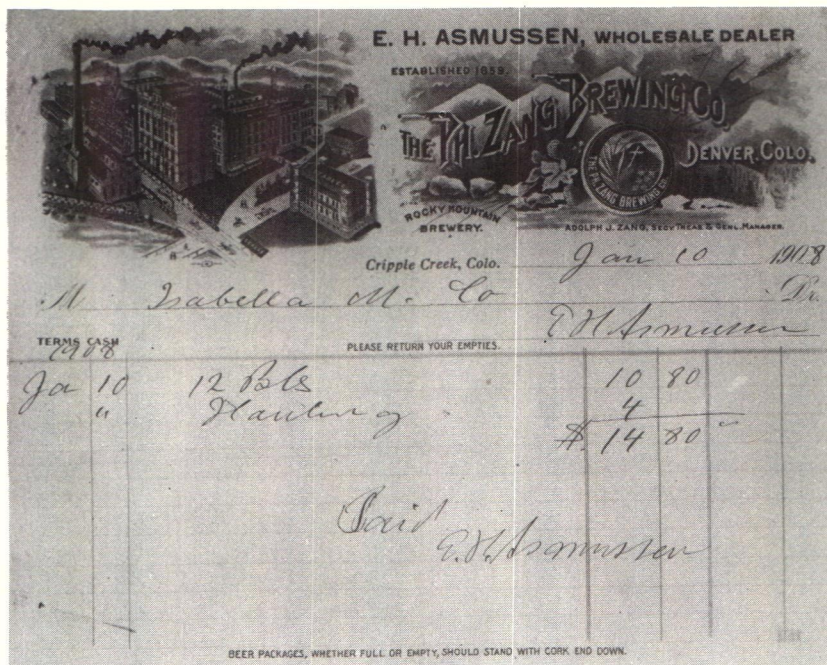 E. H. ASMUSSEN, WHOLESALE DEALER
ESTABLISHED 1859.
THE PH. ZANG BREWING CO.
DENVER, COLO.
THE PH. ZANG BREWING CO.
ROCKY MOUNTAIN
BREWERY.
ADOLPH J. ZANG, SECY TREAS & GENL. MANAGER.
Cripple Creek, Colo. Jan 10 1908
M Isabella M. Co Dr.
E H Asmussen
TERMS CASH
PLEASE RETURN YOUR EMPTIES.
1908
Ja 10 12 Bbls 10 80
" Hauling 4
$ 14 80
Paid
E. H. Asmussen
BEER PACKAGES, WHETHER FULL OR EMPTY, SHOULD STAND WITH CORK END DOWN.